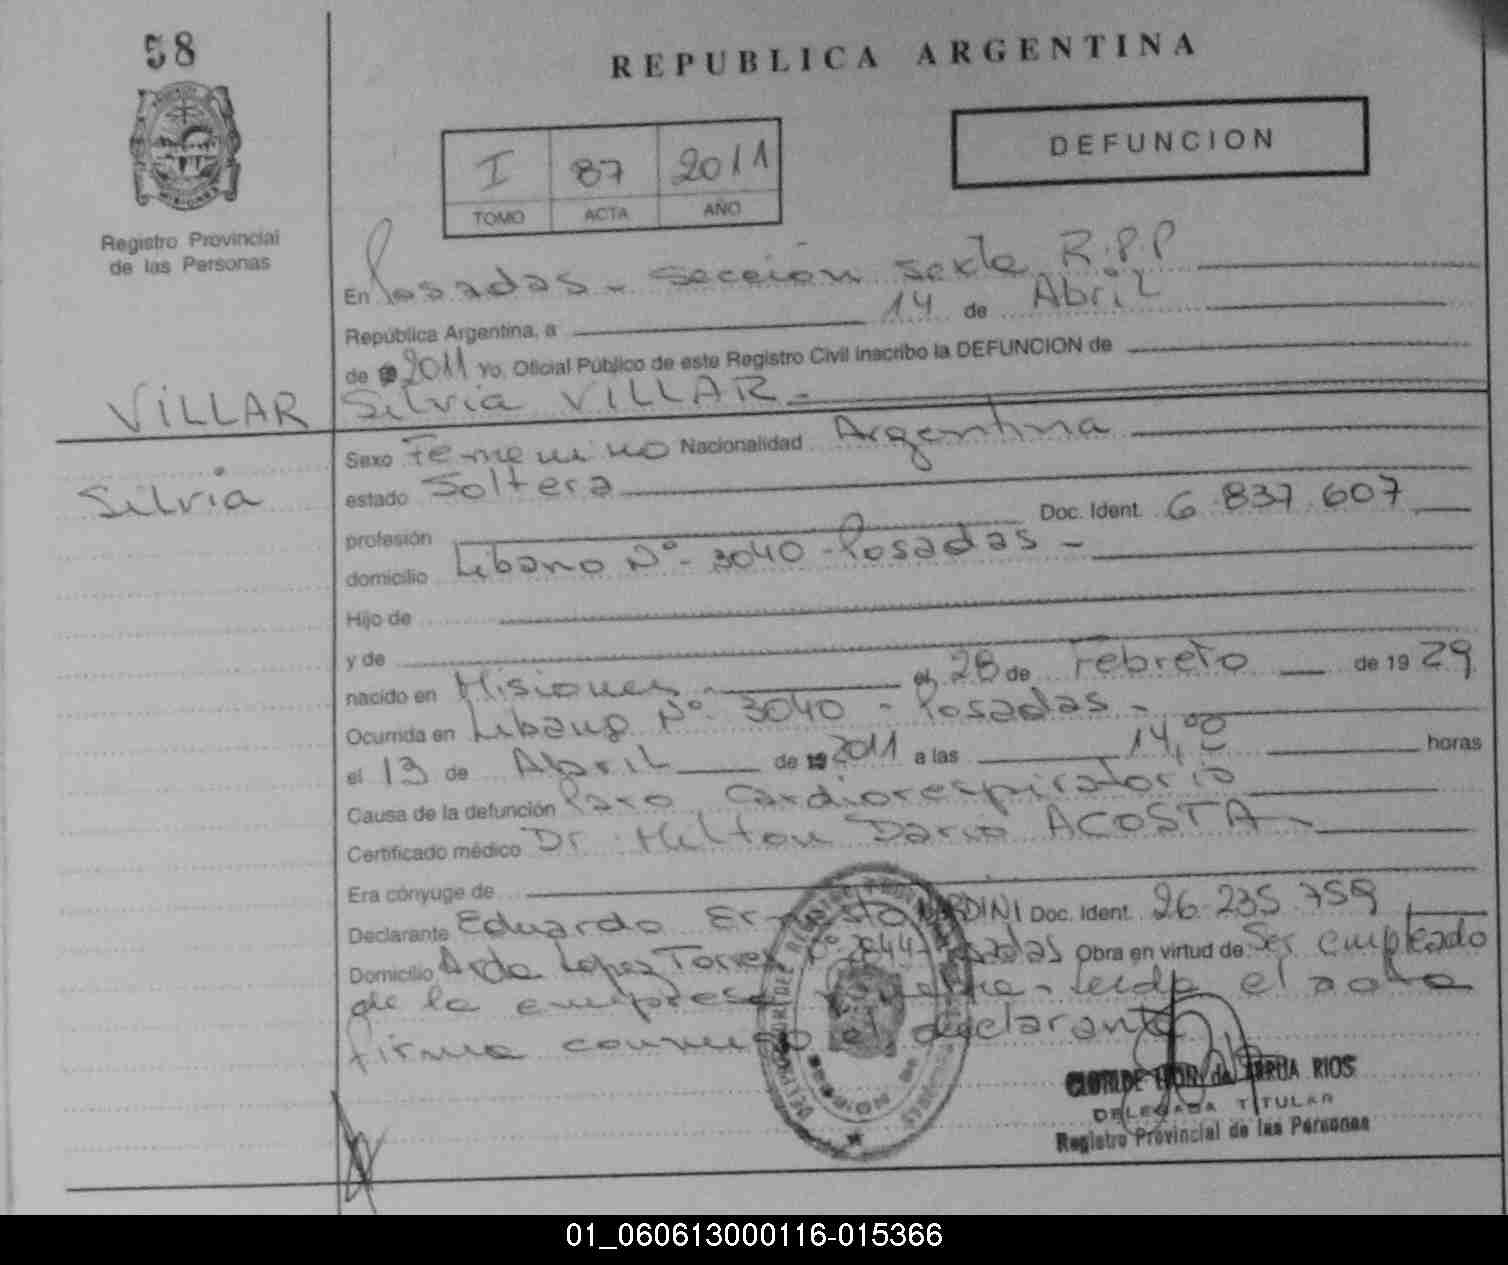 58
REPUBLICA ARGENTINA
I 87 2011
TOMO ACTA AÑO
DEFUNCION
Registro Provincial
de las Personas
En Posadas - Sección sexta R.P.P
República Argentina, a 14 de Abril
de 2011 Yo, Oficial Público de este Registro Civil inscribo la DEFUNCION de
VILLAR Silvia VILLAR -
Silvia
Sexo Femenino Nacionalidad Argentina
estado Soltera
profesión Doc. Ident. 6.837.607
domicilio Libano Nº - 3040 - Posadas -
Hijo de
y de
nacido en Misiones - el 28 de Febrero de 19 29
Ocurrida en Libano Nº 3040 - Posadas -
el 13 de Abril de 2011 a las 14,00 horas
Causa de la defunción Paro Cardiorespiratorio
Certificado médico Dr. Milton Dario ACOSTA -
Era cónyuge de
Declarante Eduardo Ernesto NARDINI Doc. Ident. 26.235.759
Domicilio Arda Lopez Torres Nº 2844 Posadas Obra en virtud de Ser empleado
de la empresa leida el acta
firma conmigo el declarante
CLOTILDE de RIOS
DELEGADA TITULAR
Registro Provincial de las Personas
01_060613000116-015366